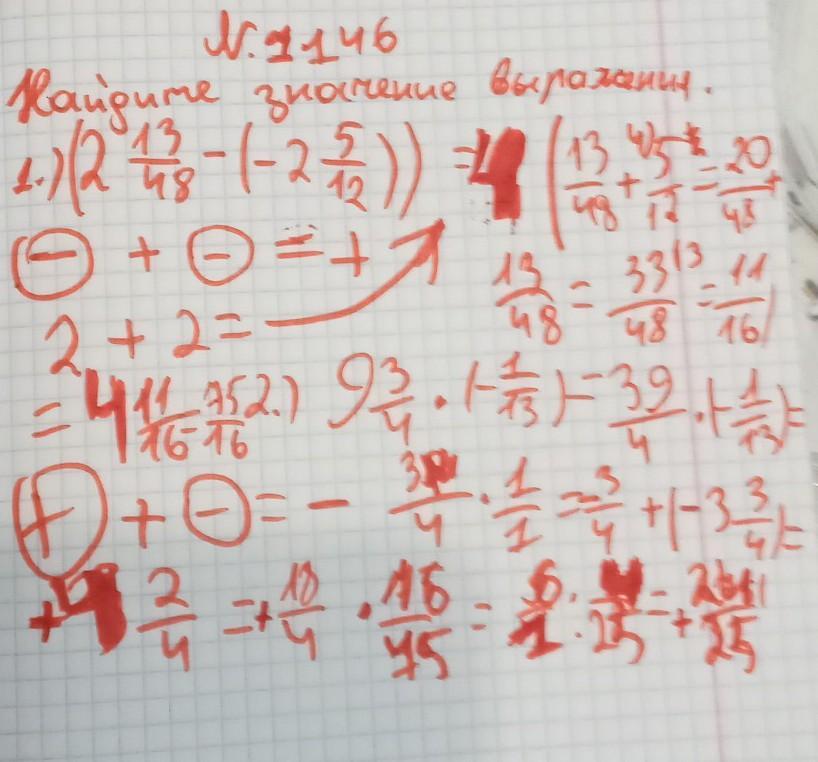 N. 1146
Найдите значение выражения.
1.) (2 13/48 - (-2 5/12)) = 4 (13/48 + 5/12 = 20/48 +
(-) + (-) = + 13/48 = 33/48 = 11/16
2 + 2 =
= 4 11/16 = 75/16 2.) 9 3/4 · (-1/13) = -39/4 · (-1/13) =
(+) + (-) = - 3/4 · 1/1 = -3/4 + (-3 3/4) =
+ 4 2/4 = + 18/4 · 16/75 = 6/1 · 4/25 = + 24/25